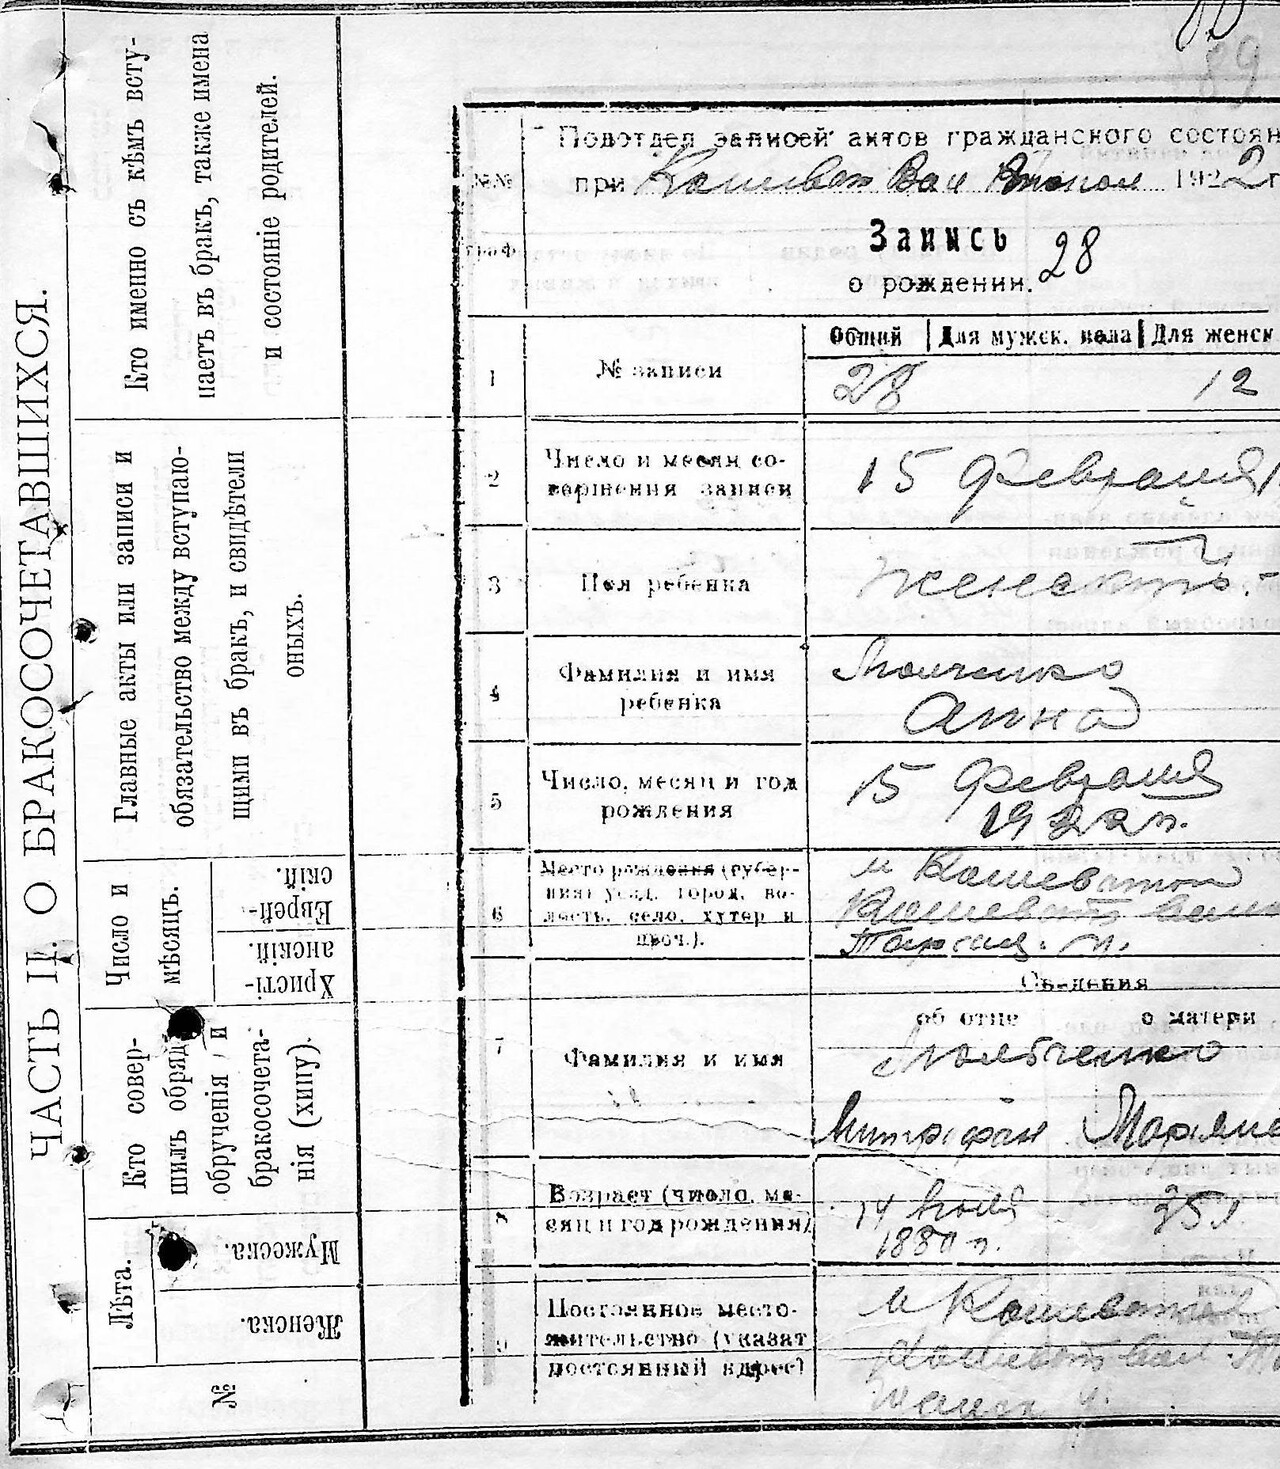 89
ЧАСТЬ II. О БРАКОСОЧЕТАВШИХСЯ.
Кто именно съ кѣмъ всту-
паетъ въ бракъ, также имена
и состояніе родителей.
Главные акты или записи и
обязательство между вступаю-
щими въ бракъ, и свидѣтели
оныхъ.
Число и
мѣсяцъ.
Еврей-
скій.
Христі-
анскій.
Кто совер-
шилъ обряд
обрученія и
бракосочета-
нія (хипу).
Лѣта.
Мужеска.
Женска.
№
Подотдел записей актов гражданского состоян
при 1922 г
№№
граф
Запись 28
о рождении.
1
№ записи
Общий Для мужск. пола Для женск
28 12
2
Число и месяц со-
вершения записи
15 Февраля
3
Пол ребенка
4
Фамилия и имя
ребенка
Анна
5
Число, месяц и год
рождения
15 Февраля
1922 г.
6
Место рождения (губер-
ния, уезд, город, во-
лость, село, хутор и
проч.).
м Кошеватой
Кошеват
7
Сведения
об отце о матери
Фамилия и имя
Митрофан
8
Возраст (число, ме-
сяц и год рождения)
14
9
Постоянное место-
жительство (указат
постоянный адрес)
м Кошеватой
Кошеват